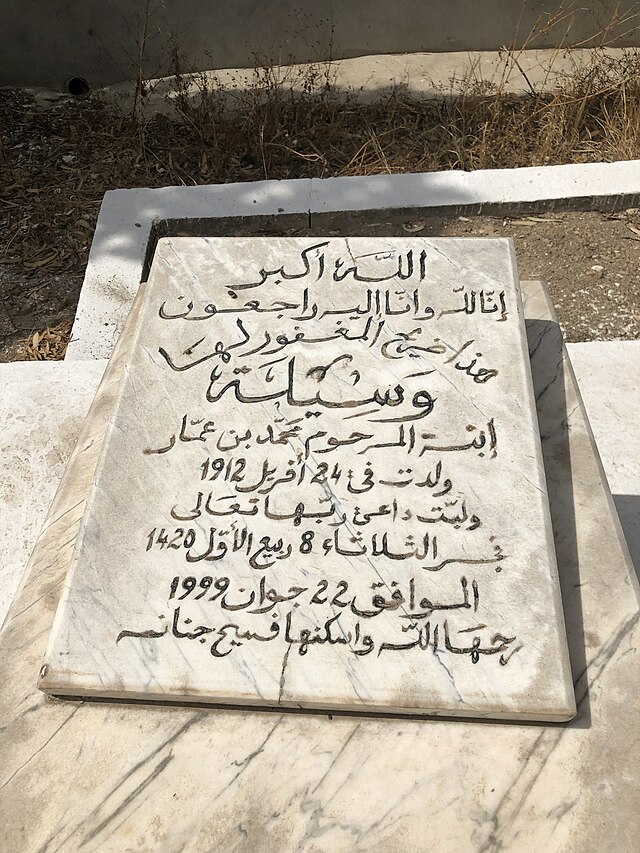 اللّه أكبر
إنّا للّه وانّا إليه راجعون
هذا ضريح المغفور لها
وسيلة
إبنة المرحوم محمّد بن عمّار
ولدت في 24 أفريل 1912
ولبّت داعي ربّها تعالى
فجر الثلاثاء 8 ربيع الأوّل 1420
الموافق 22 جوان 1999
رحمها اللّه واسكنها فسيح جنانه